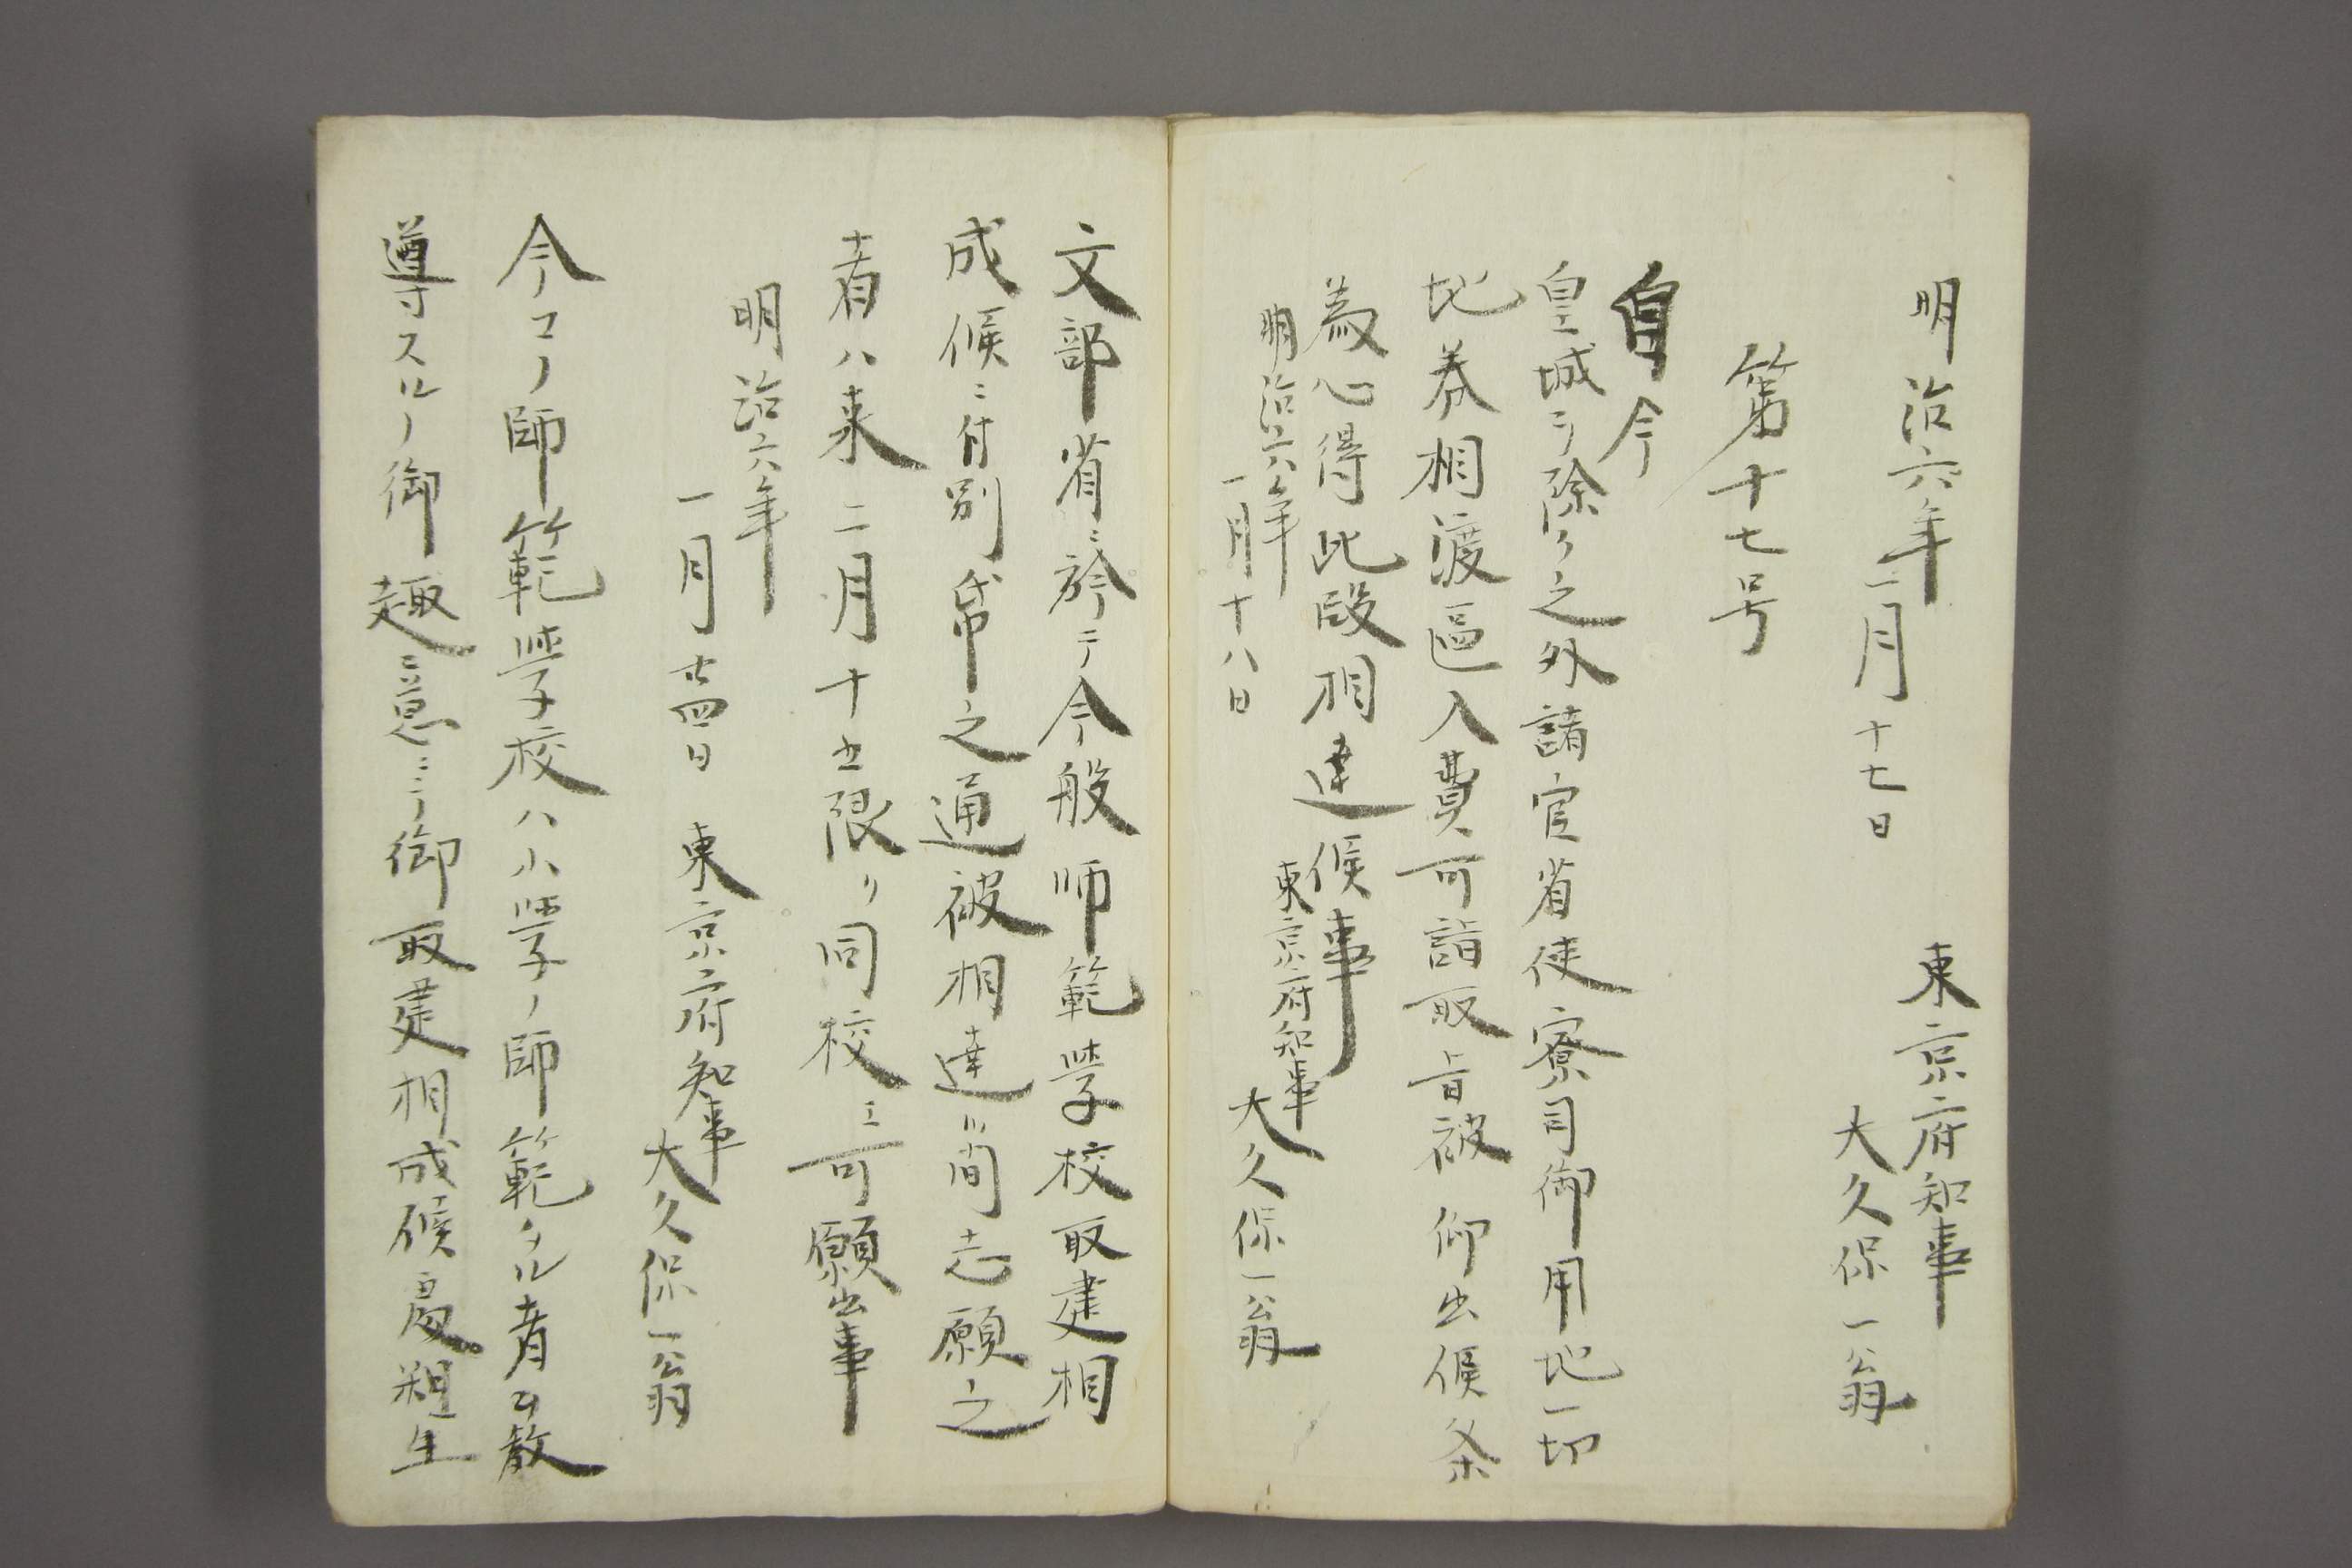 明治六年
一月十七日
東京府知事
大久保一翁
第十七号
自今
皇城ヲ除クノ之外諸官省使寮司御用地一切
地券相渡區入費可詣取旨被仰出候条
為心得此段相達候事
明治六年
一月十八日
東京府知事
大久保一翁
文部省ニ於テ今般师範学校取建相
成候ニ付別帋之通被相達候間志願之
者ハ来二月十五限リ同校エ可願出事
明治六年
一月廿四日
東京府知事
大久保一翁
今コノ師範学校ハ小学ノ師範タル者ヲ教
導スルノ御趣意ニテ御取建相成候處 生